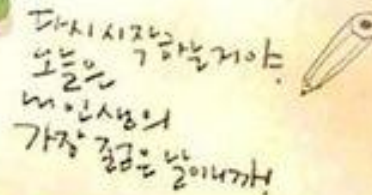 다시 시작하는거야.
오늘은
내 인생의
가장 젊은 날이니까!